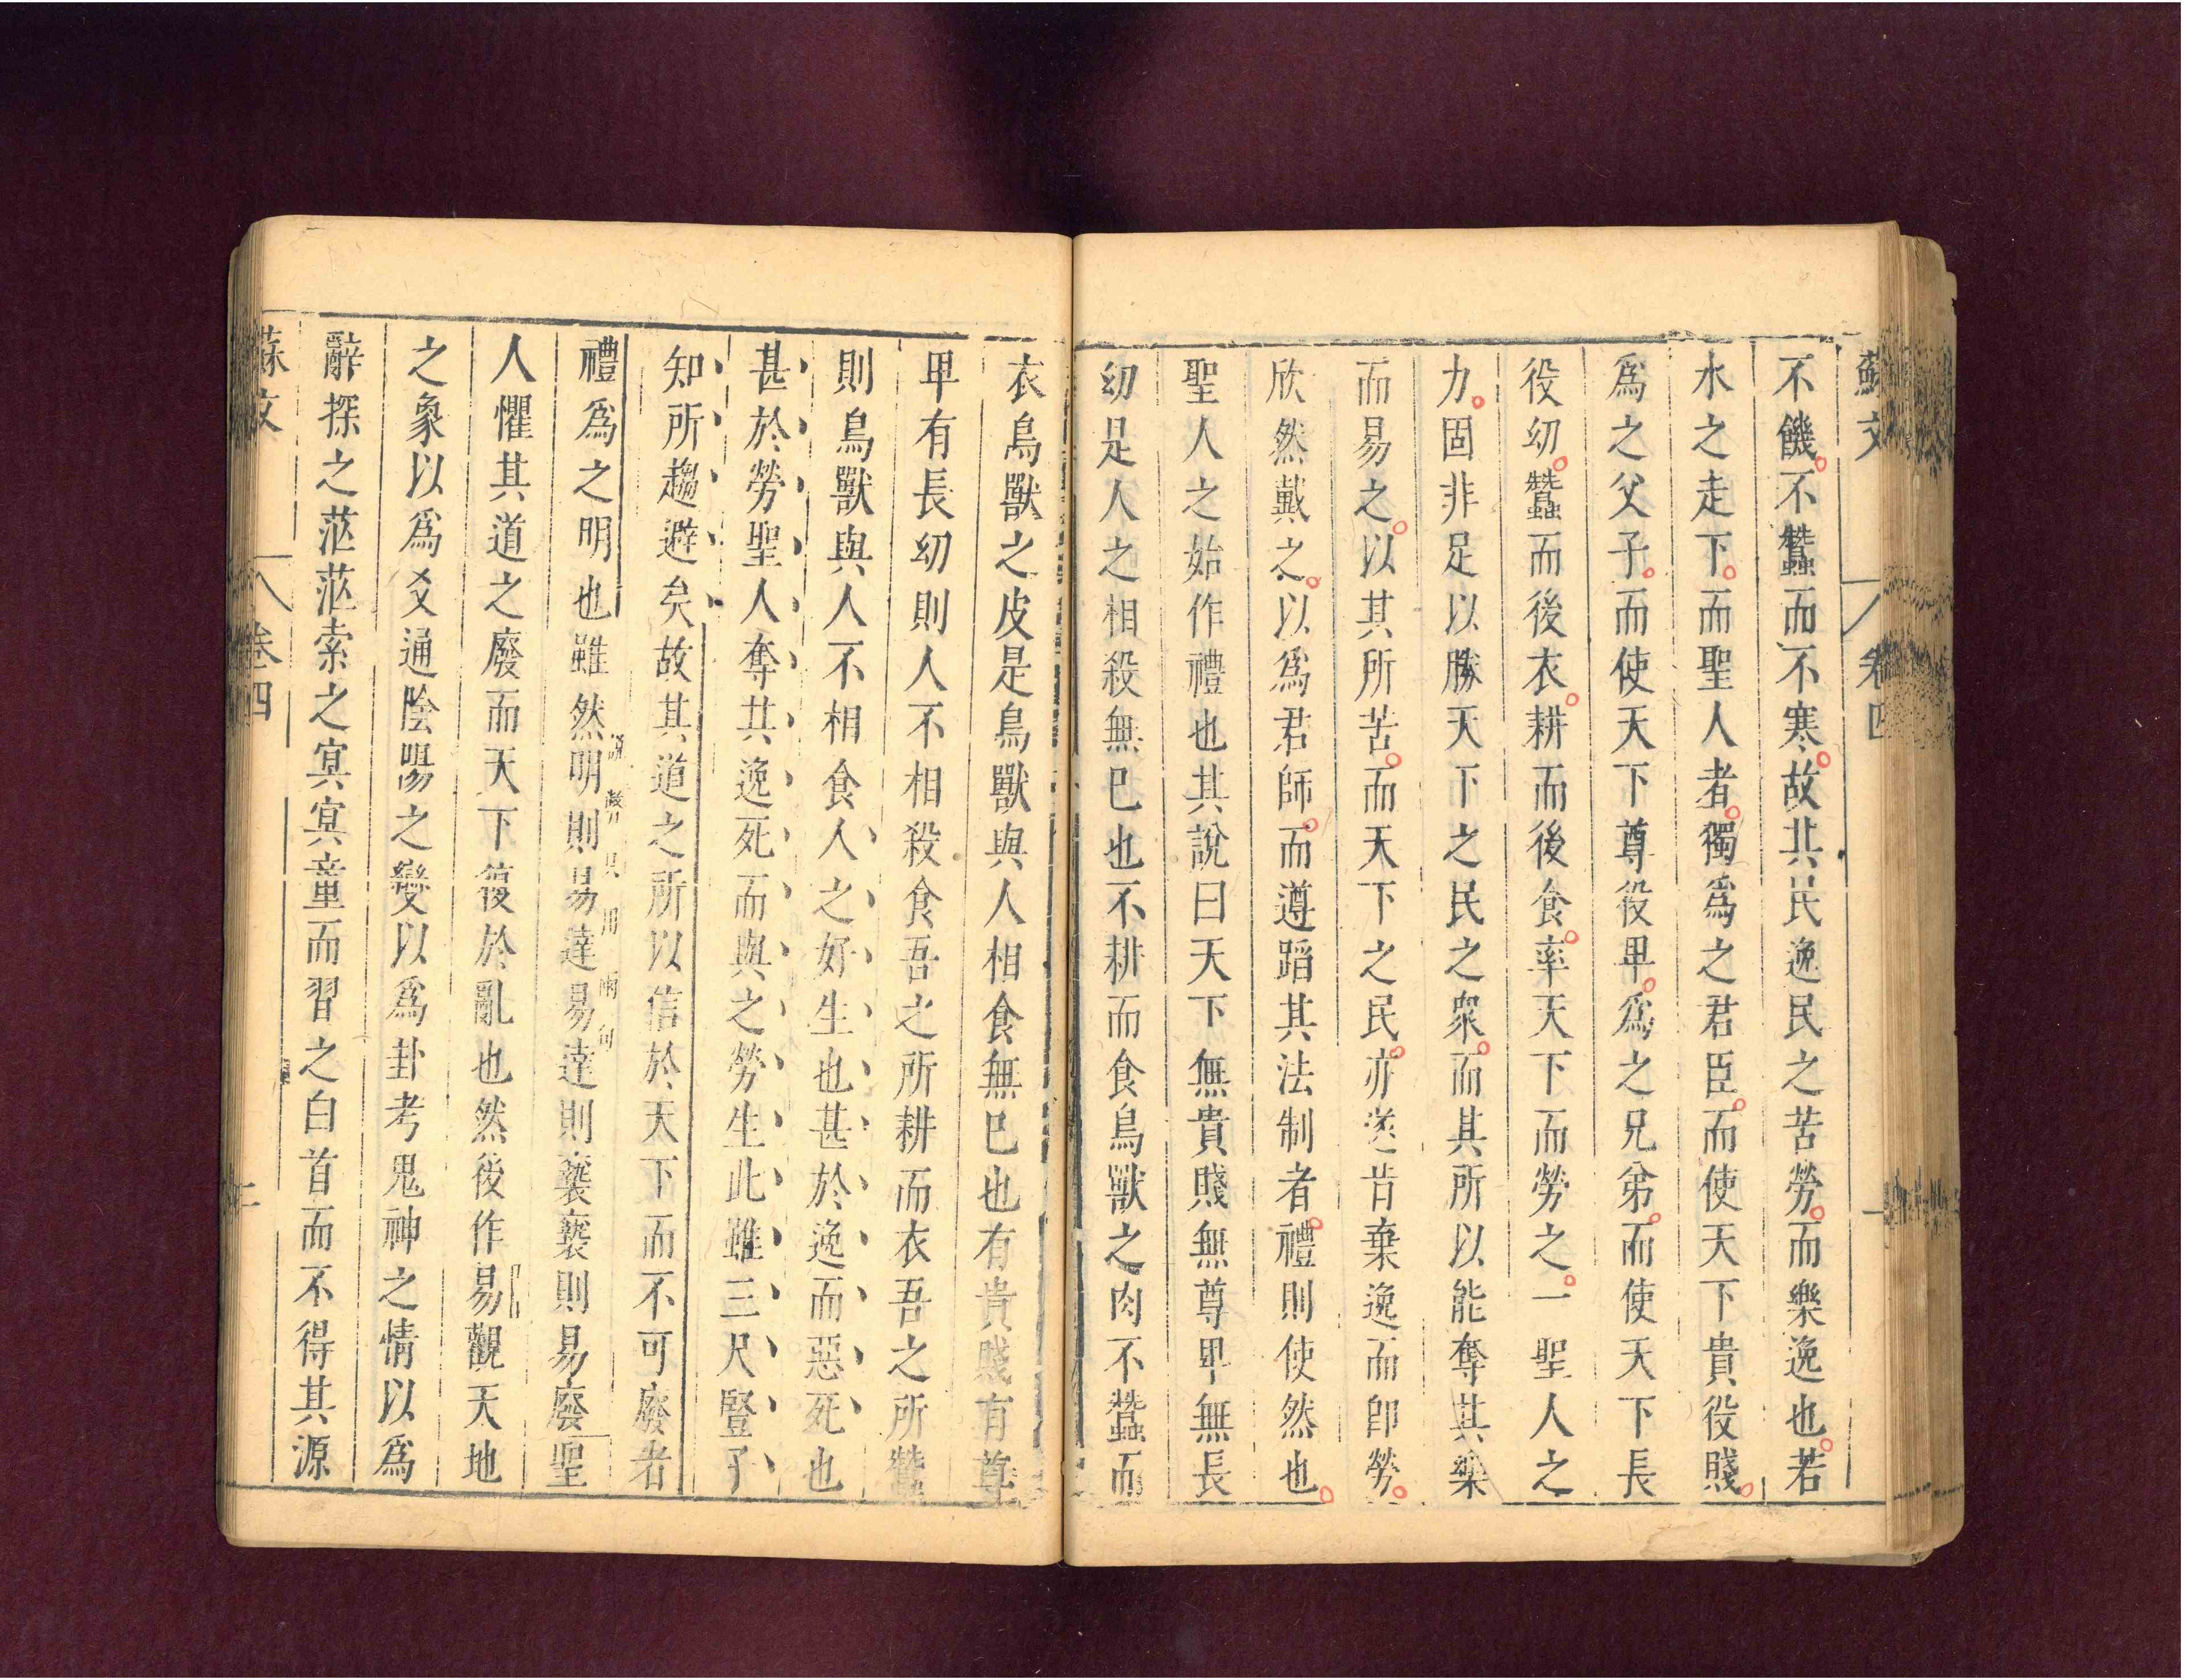 蘇文
卷四
不饑不蠶而不寒故其民逸民之苦勞而樂逸也若
水之走下而聖人者獨爲之君臣而使天下貴役賤
爲之父子而使天下尊役卑爲之兄弟而使天下長
役幼蠶而後衣耕而後食率天下而勞之一聖人之
力固非足以勝天下之民之衆而其所以能奪其樂
而易之以其所苦而天下之民亦遂肯棄逸而卽勞
欣然戴之以爲君師而遵蹈其法制者禮則使然也
聖人之始作禮也其說曰天下無貴賤無尊卑無長
幼是人之相殺無已也不耕而食鳥獸之肉不蠶而
衣鳥獸之皮是鳥獸與人相食無已也有貴賤有尊
卑有長幼則人不相殺食吾之所耕而衣吾之所蠶
則鳥獸與人不相食人之好生也甚於逸而惡死也
甚於勞聖人奪其逸死而與之勞生此雖三尺豎子
知所趨避矣故其道之所以信於天下而不可廢者
禮爲之明也雖然明則易達易達則褻褻則易廢聖
人懼其道之廢而天下復於亂也然後作易觀天地
之象以爲爻通陰陽之變以爲卦考鬼神之情以爲
辭探之茫茫索之冥冥童而習之白首而不得其源
蘇文
卷四
二